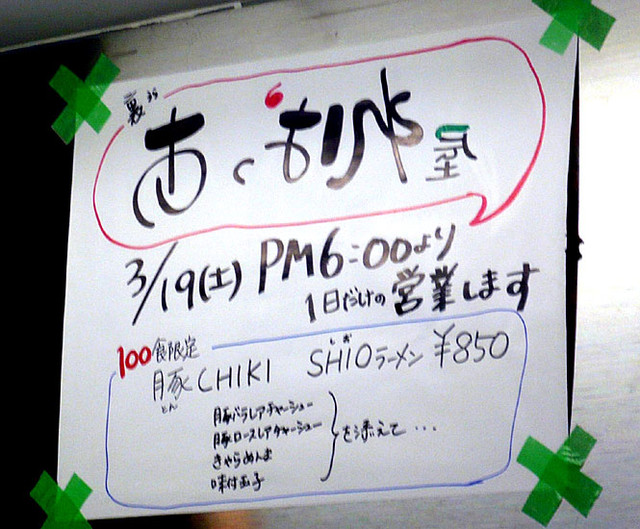 裏
3/19(土) PM6:00より
1日だけの営業します
100食限定
しお
豚CHIKI SHIOラーメン ¥850
とん
豚バラレアチャーシュー
豚ロースレアチャーシュー
きゃらめんま
味付玉子
を添えて...